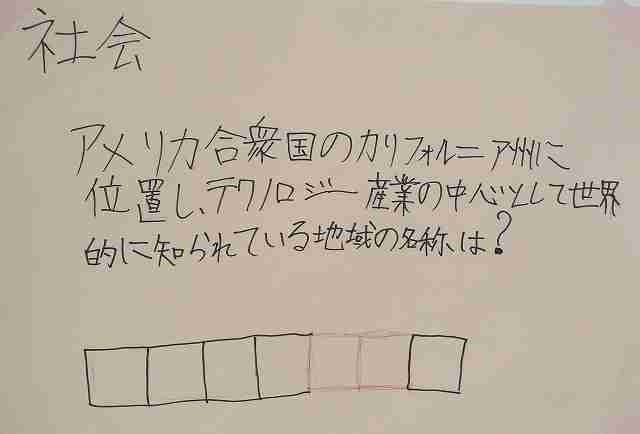 社会
アメリカ合衆国のカリフォルニア州に
位置し、テクノロジー産業の中心として世界
的に知られている地域の名称は?